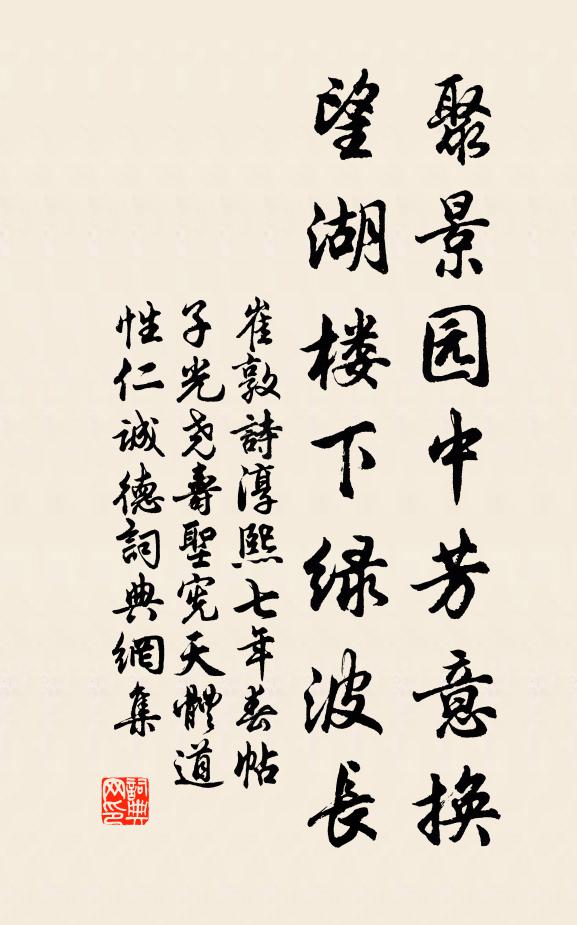 聚景园中芳意换
望湖楼下绿波長
崔敦詩淳熙七年春帖
子光尧壽聖宪天體道
性仁诚德詞典網集
詞典网印